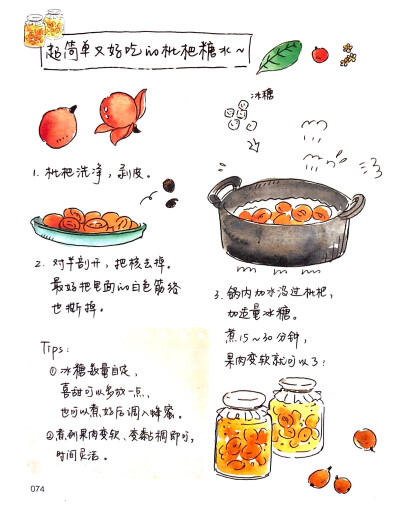 超简单又好吃的枇杷糖水~
冰糖
1. 枇杷洗净，剥皮。
2. 对半剖开，把核去掉。
最好把里面的白色筋络
也撕掉。
3. 锅内加水没过枇杷，
加适量冰糖。
煮15~30分钟，
果肉变软就可以了！
Tips:
①冰糖数量自定，
喜甜可以多放一点，
也可以煮好后调入蜂蜜。
②煮到果肉变软、变黏稠即可，
时间灵活。
074